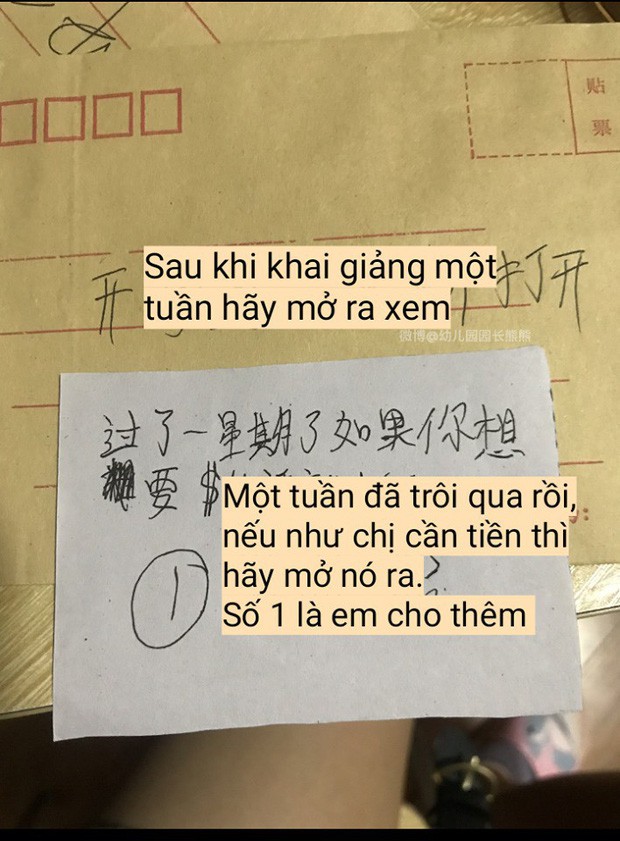 贴
票
开
打开
Sau khi khai giảng một
tuần hãy mở ra xem
微博@幼儿园园长熊熊
过了一星期了如果你想
要 $
Một tuần đã trôi qua rồi,
nếu như chị cần tiền thì
hãy mở nó ra.
Số 1 là em cho thêm
1